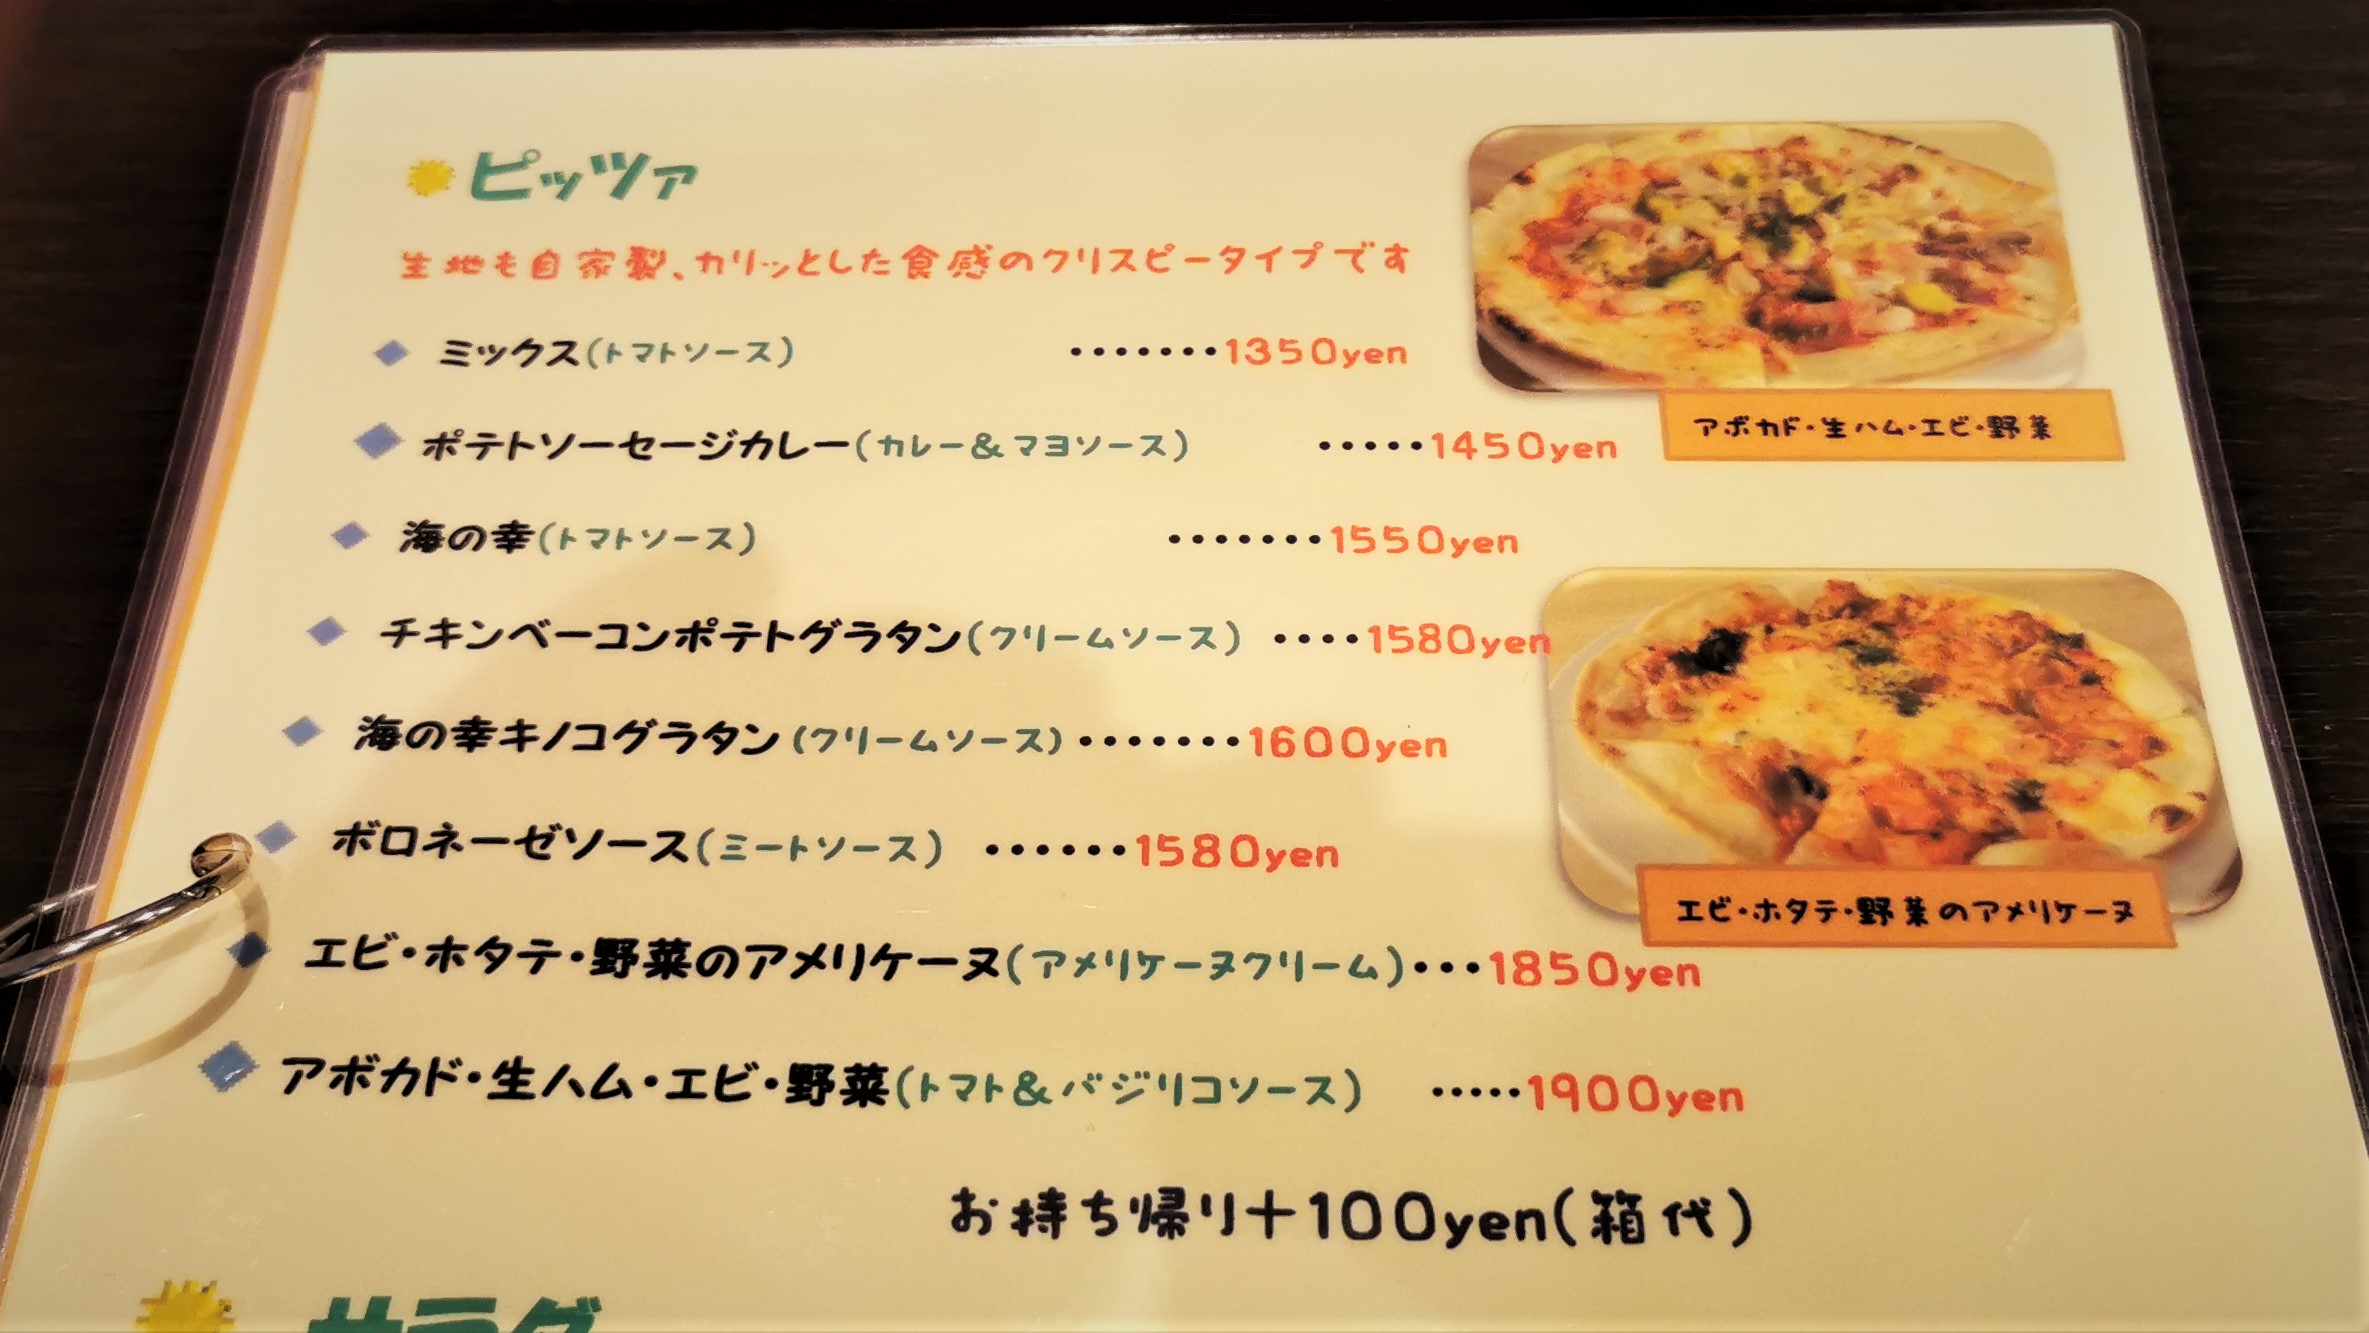 ピッツァ
生地も自家製、カリッとした食感のクリスピータイプです
ミックス(トマトソース) ・・・・・・・1350yen
ポテトソーセージカレー(カレー&マヨソース) ・・・・・1450yen
海の幸(トマトソース) ・・・・・・・1550yen
チキンベーコンポテトグラタン(クリームソース) ・・・・1580yen
海の幸キノコグラタン(クリームソース)・・・・・・・1600yen
ボロネーゼソース(ミートソース) ・・・・・・1580yen
エビ・ホタテ・野菜のアメリケーヌ(アメリケーヌクリーム)・・・1850yen
アボカド・生ハム・エビ・野菜(トマト&バジリコソース) ・・・・・1900yen
お持ち帰り+100yen(箱代)
アボカド・生ハム・エビ・野菜
エビ・ホタテ・野菜のアメリケーヌ
サラダ